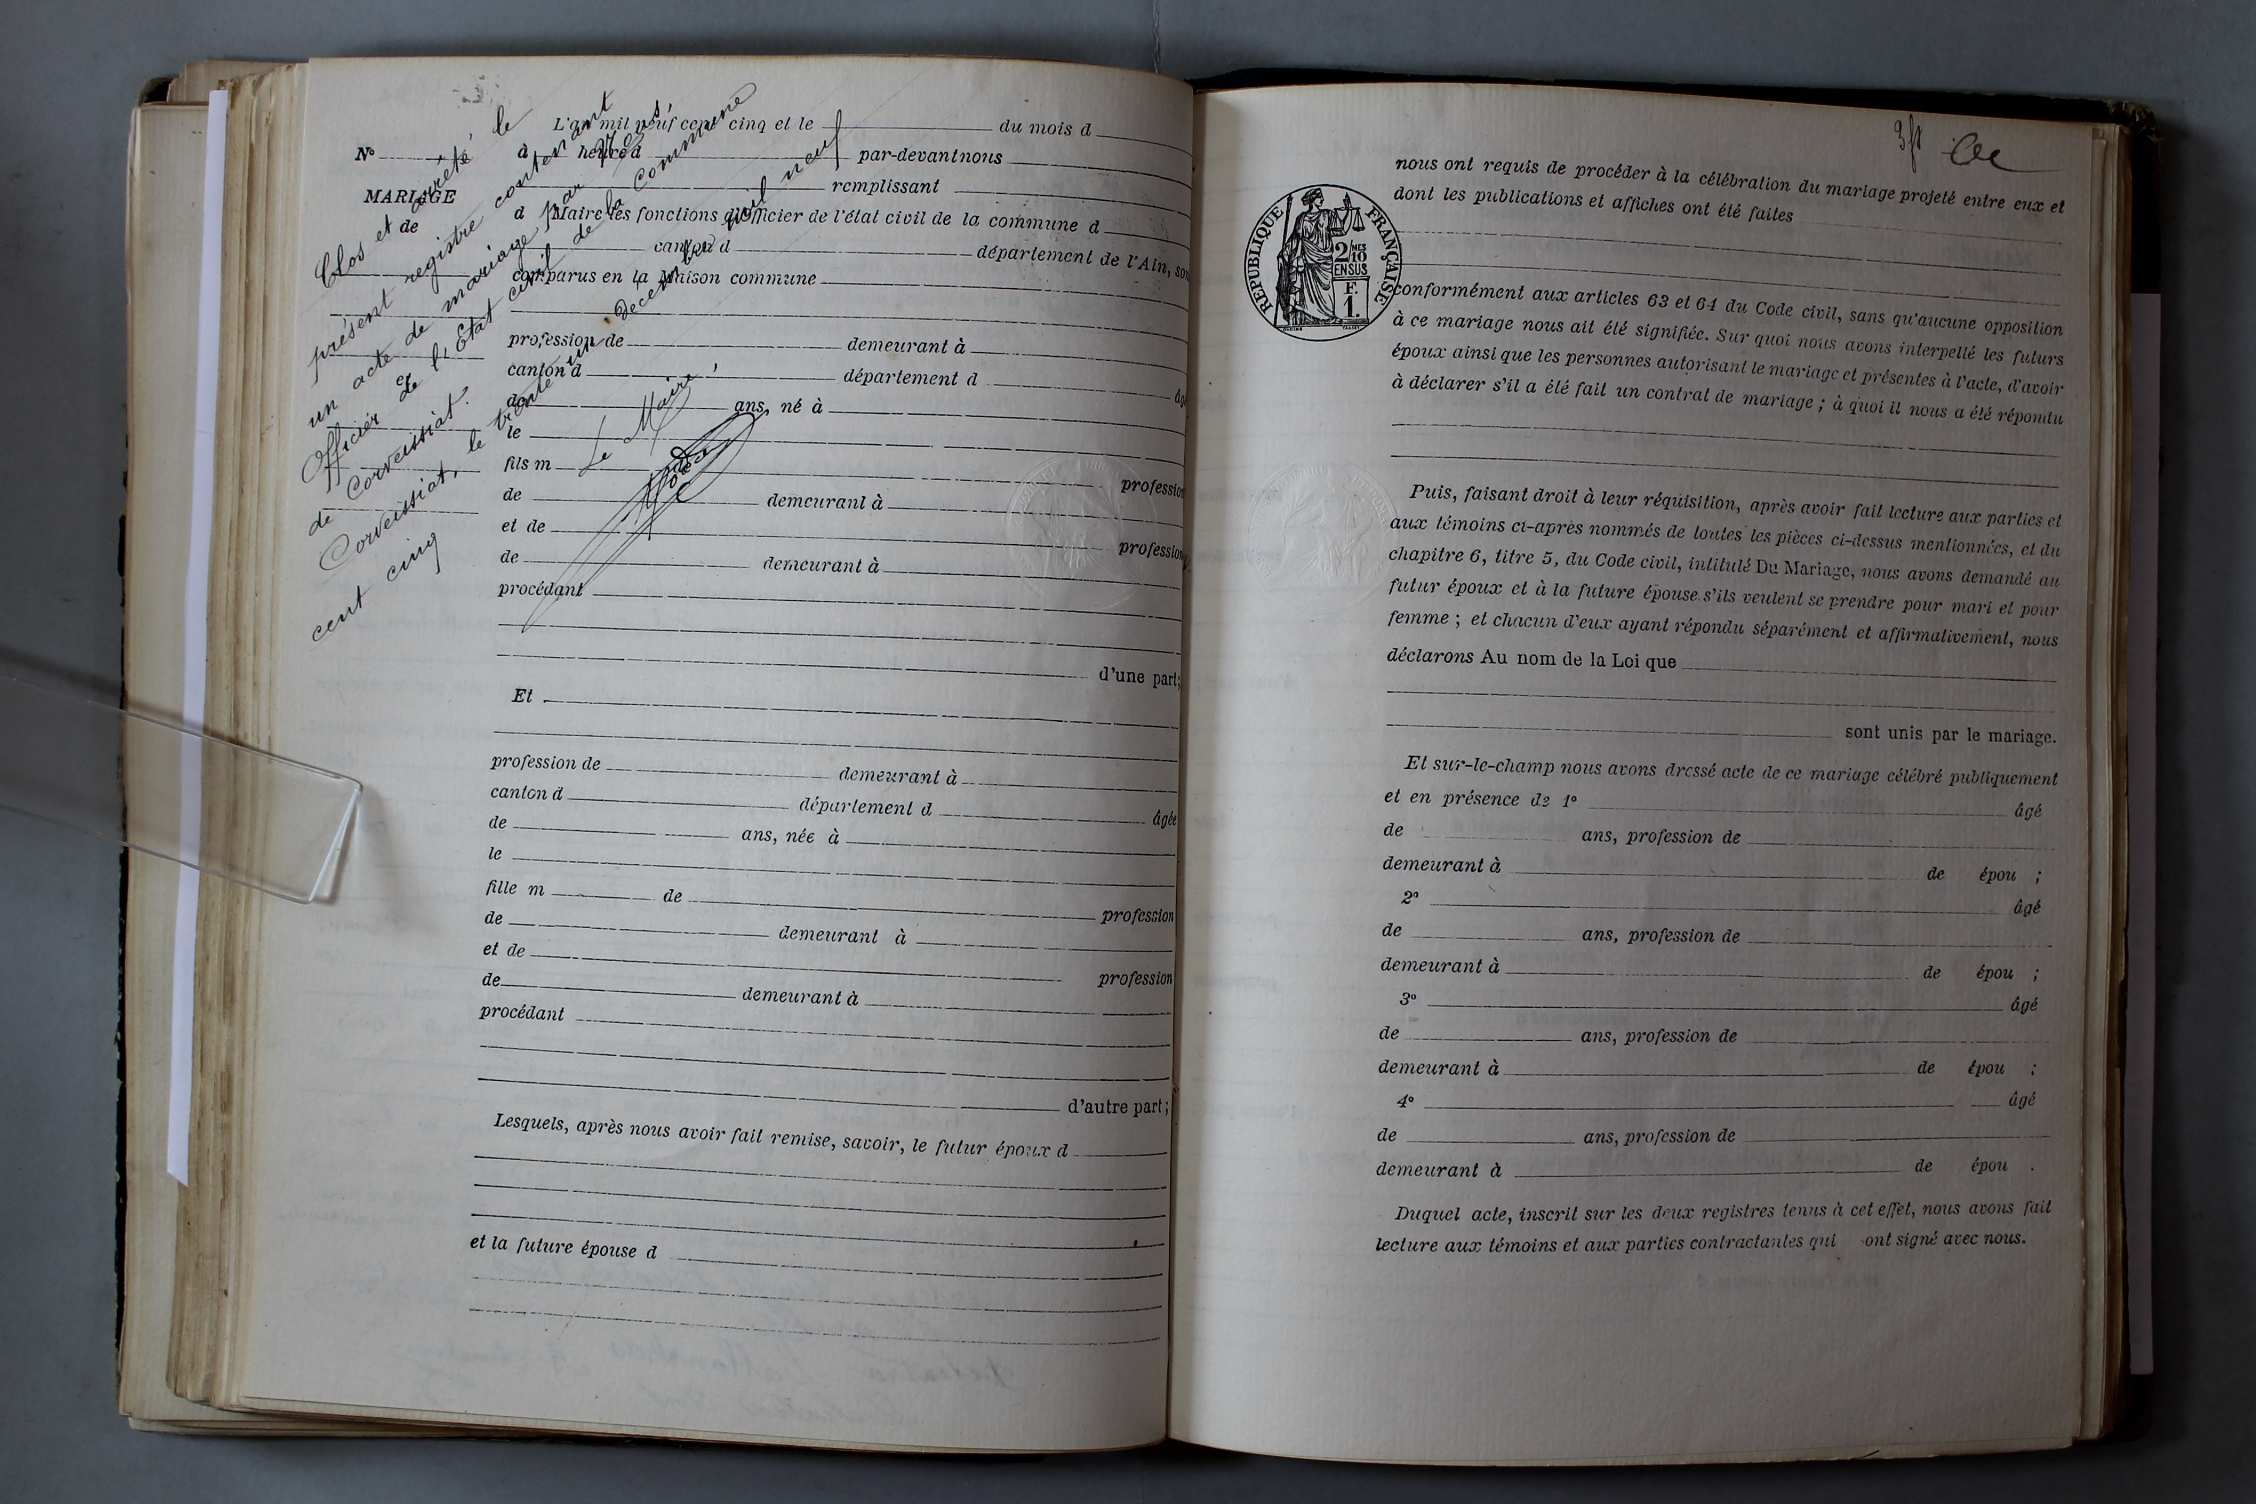 Clos et arrêté le
présent registre contenant
un acte de mariage par nous
Officier de l'Etat civil de la Commune
de Corveissiat.
Corveissiat, le trente un decembre mil neuf
cent cinq
Le Maire,
L'an mil neuf cent cinq et le du mois d
N° à heure d par-devant nous
MARIAGE remplissant
de
d Maire les fonctions d'officier de l'état civil de la commune d
canton d département de l'Ain, son
comparus en la Maison commune
profession de demeurant à
canton d département d âgé
de ans, né à
le
fils m profession
de demeurant à
et de profession
de demeurant à
procédant
d'une part;
Et
profession de demeurant à
canton d département d âgée
de ans, née à
le
fille m de profession
de demeurant à
et de profession
de demeurant à
procédant
d'autre part;
Lesquels, après nous avoir fait remise, savoir, le futur époux d
et la future épouse d
nous ont requis de procéder à la célébration du mariage projeté entre eux et
dont les publications et affiches ont été faites
RÉPUBLIQUE FRANÇAISE
2/10 MES
EN SUS
F.
1.
conformément aux articles 63 et 64 du Code civil, sans qu'aucune opposition
à ce mariage nous ait été signifiée. Sur quoi nous avons interpellé les futurs
époux ainsi que les personnes autorisant le mariage et présentes à l'acte, d'avoir
à déclarer s'il a été fait un contrat de mariage ; à quoi il nous a été répondu
Puis, faisant droit à leur réquisition, après avoir fait lecture aux parties et
aux témoins ci-après nommés de toutes les pièces ci-dessus mentionnées, et du
chapitre 6, titre 5, du Code civil, intitulé Du Mariage, nous avons demandé au
futur époux et à la future épouse s'ils veulent se prendre pour mari et pour
femme ; et chacun d'eux ayant répondu séparément et affirmativement, nous
déclarons Au nom de la Loi que
sont unis par le mariage.
Et sur-le-champ nous avons dressé acte de ce mariage célébré publiquement
et en présence de 1° âgé
de ans, profession de
demeurant à de épou ;
2° âgé
de ans, profession de
demeurant à de épou ;
3° âgé
de ans, profession de
demeurant à de épou ;
4° âgé
de ans, profession de
demeurant à de épou .
Duquel acte, inscrit sur les deux registres tenus à cet effet, nous avons fait
lecture aux témoins et aux parties contractantes qui ont signé avec nous.